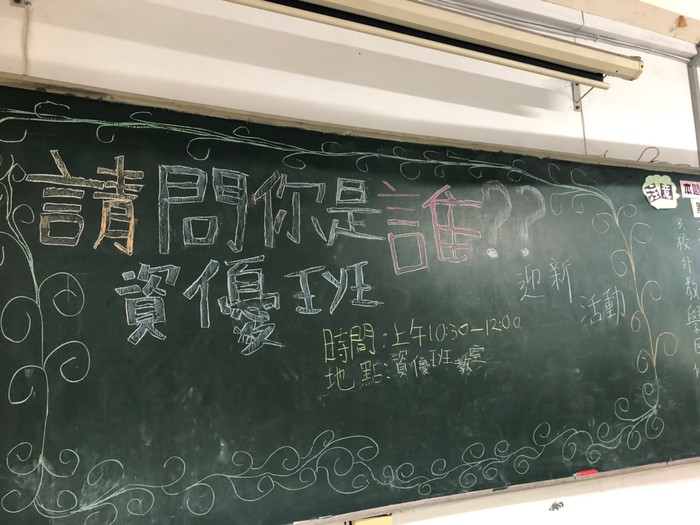 請問你是誰??
資優班
迎新
活動
時間:上午10:30-12:00
地點:資優班教室